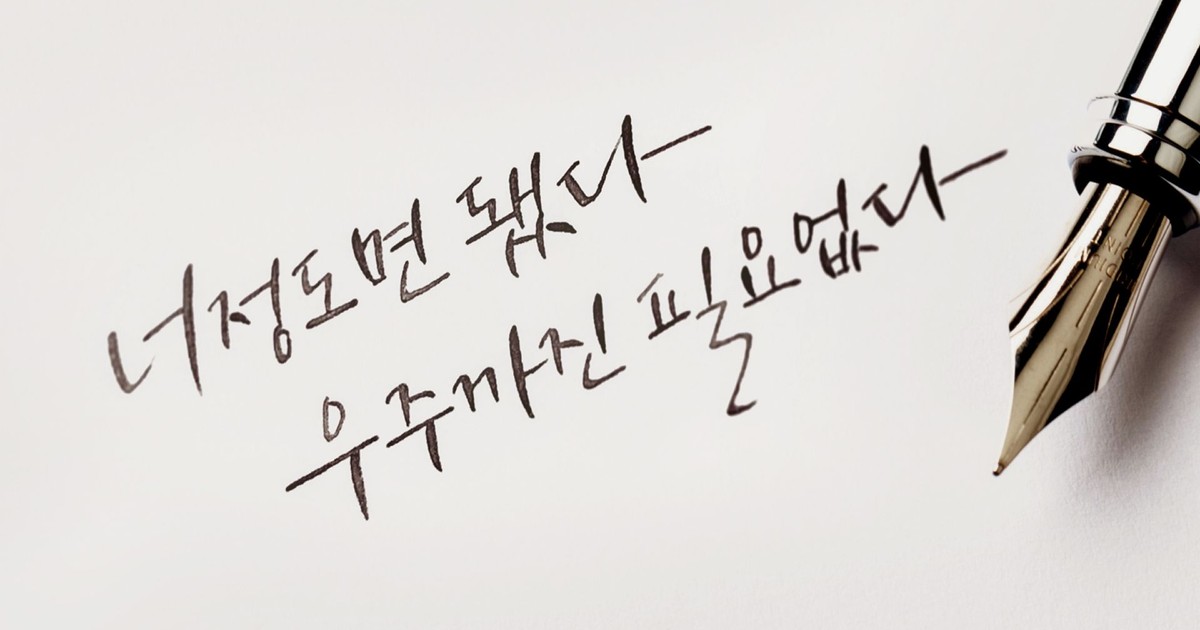 너 정도면 됐다
우주까진 필요 없다